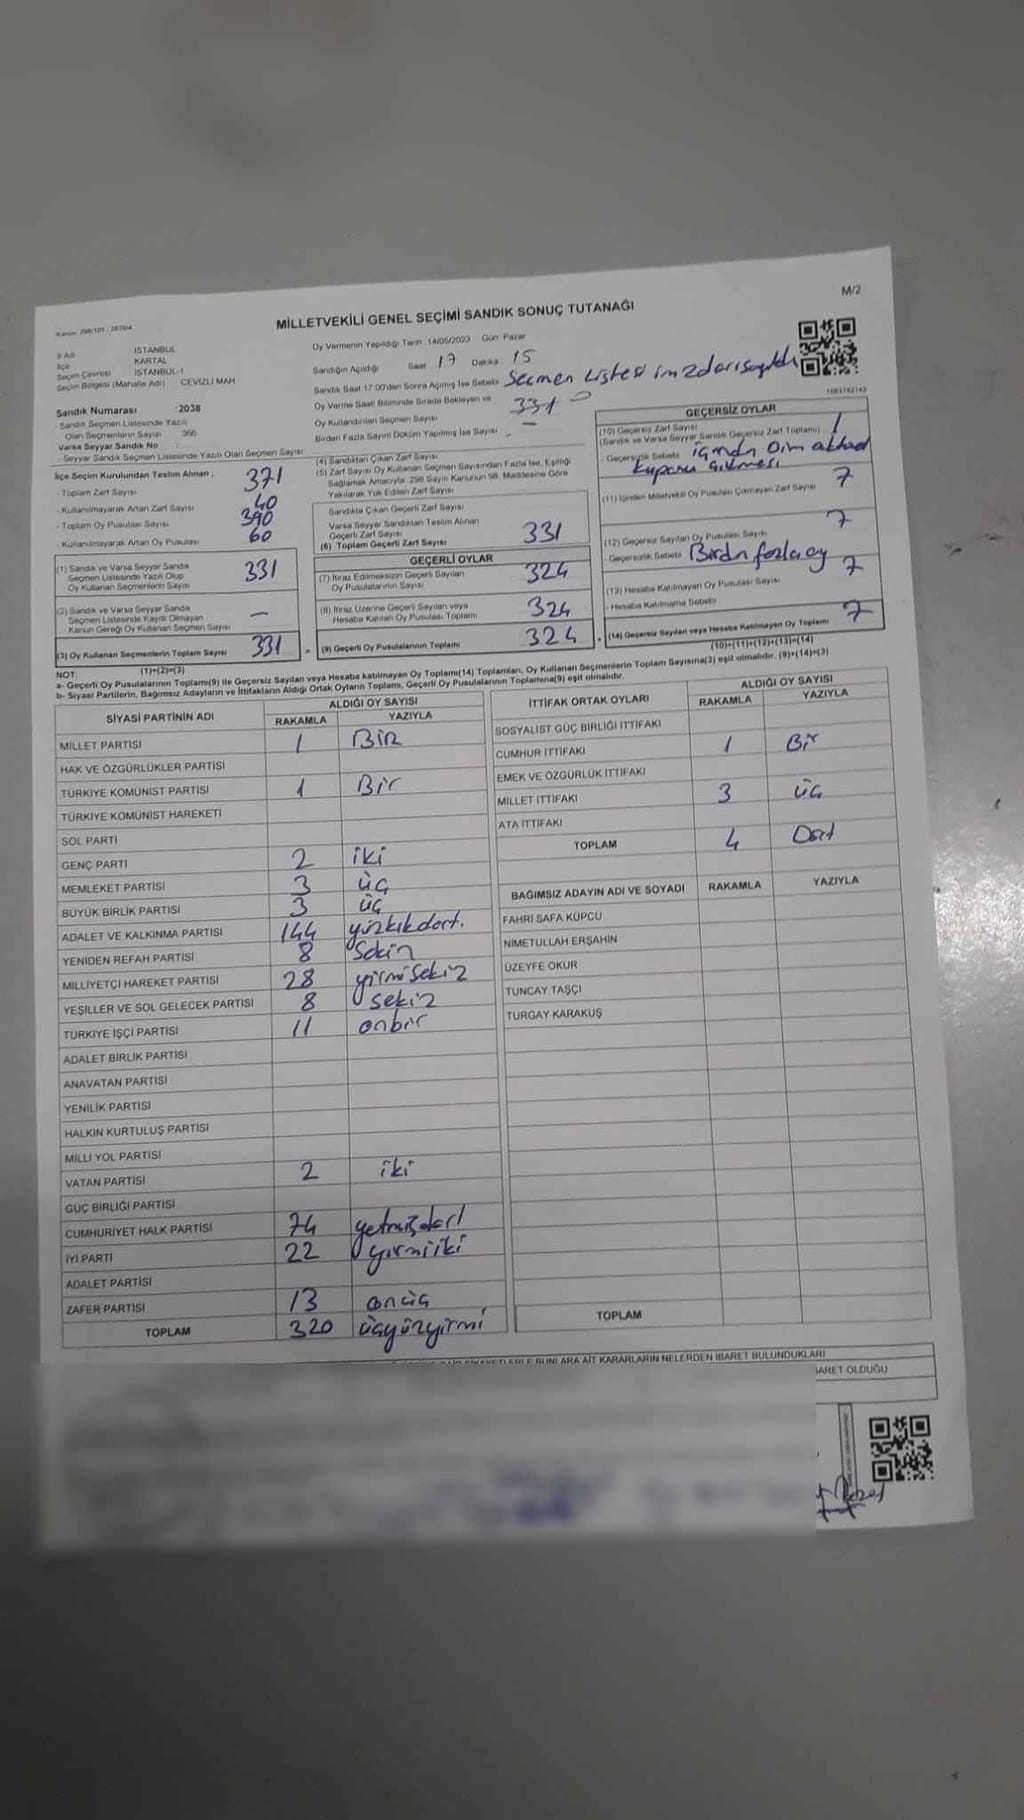 M/2
MİLLETVEKİLİ GENEL SEÇİMİ SANDIK SONUÇ TUTANAĞI
İl Adı İSTANBUL
İlçe KARTAL
Seçim Çevresi İSTANBUL-1
Seçim Bölgesi (Mahalle Adı) CEVİZLİ MAH
Sandık Numarası :2038
- Sandık Seçmen Listesinde Yazılı
Olan Seçmenlerin Sayısı 366
Varsa Seyyar Sandık No
- Seyyar Sandık Seçmen Listesinde Yazılı Olan Seçmen Sayısı
Oy Vermenin Yapıldığı Tarih :14/05/2023 Gün: Pazar
Sandığın Açıldığı Saat 17 Dakika 15
Sandık Saat 17:00'den Sonra Açılmış İse Sebebi Seçmen Listesi
Oy Verme Saati Bitiminde Sırada Bekleyen ve
Oy Kullandırılan Seçmen Sayısı 331
Birden Fazla Sayım Döküm Yapılmış İse Sayısı -
1683782143
İlçe Seçim Kurulundan Teslim Alınan ;
- Toplam Zarf Sayısı 371
- Kullanılmayarak Artan Zarf Sayısı 40
- Toplam Oy Pusulası Sayısı 390
- Kullanılmayarak Artan Oy Pusulası 60
(1) Sandık ve Varsa Seyyar Sandık
Seçmen Listesinde Yazılı Olup
Oy Kullanan Seçmenlerin Sayısı 331
(2) Sandık ve Varsa Seyyar Sandık
Seçmen Listesinde Kayıtlı Olmayan
Kanun Gereği Oy Kullanan Seçmen Sayısı -
(3) Oy Kullanan Seçmenlerin Toplam Sayısı 331
(1)+(2)=(3)
(4) Sandıktan Çıkan Zarf Sayısı
(5) Zarf Sayısı Oy Kullanan Seçmen Sayısından Fazla İse, Eşitliği
Sağlamak Amacıyla, 298 Sayılı Kanunun 98. Maddesine Göre
Yakılarak Yok Edilen Zarf Sayısı
Sandıkta Çıkan Geçerli Zarf Sayısı
Varsa Seyyar Sandıktan Teslim Alınan
Geçerli Zarf Sayısı
(6) Toplam Geçerli Zarf Sayısı 331
GEÇERLİ OYLAR
(7) İtiraz Edilmeksizin Geçerli Sayılan
Oy Pusulalarının Sayısı 324
(8) İtiraz Üzerine Geçerli Sayılan veya
Hesaba Katılan Oy Pusulası Toplamı 324
(9) Geçerli Oy Pusulalarının Toplamı 324
GEÇERSİZ OYLAR
(10) Geçersiz Zarf Sayısı
(Sandık ve Varsa Seyyar Sandık Geçersiz Zarf Toplamı) 1
- Geçersizlik Sebebi
(11) İçinden Milletvekili Oy Pusulası Çıkmayan Zarf Sayısı 7
(12) Geçersiz Sayılan Oy Pusulası Sayısı 7
- Geçersizlik Sebebi Birdn fazla oy
(13) Hesaba Katılmayan Oy Pusulası Sayısı 7
- Hesaba Katılmama Sebebi
(14) Geçersiz Sayılan veya Hesaba Katılmayan Oy Toplamı 7
(10)+(11)+(12)+(13)=(14)
NOT:
a- Geçerli Oy Pusulalarının Toplamı(9) ile Geçersiz Sayılan veya Hesaba katılmayan Oy Toplamı(14) Toplamları, Oy Kullanan Seçmenlerin Toplam Sayısına(3) eşit olmalıdır. (9)+(14)=(3)
b- Siyasi Partilerin, Bağımsız Adayların ve İttifakların Aldığı Ortak Oyların Toplamı, Geçerli Oy Pusulalarının Toplamına(9) eşit olmalıdır.
SİYASİ PARTİNİN ADI ALDIĞI OY SAYISI
RAKAMLA YAZIYLA
MİLLET PARTİSİ 1 Bir
HAK VE ÖZGÜRLÜKLER PARTİSİ
TÜRKİYE KOMÜNİST PARTİSİ 1 Bir
TÜRKİYE KOMÜNİST HAREKETİ
SOL PARTİ
GENÇ PARTİ 2 iki
MEMLEKET PARTİSİ 3 üç
BÜYÜK BİRLİK PARTİSİ 3 üç
ADALET VE KALKINMA PARTİSİ 144 yüzkıkdört.
YENİDEN REFAH PARTİSİ 8 Sekiz
MİLLİYETÇİ HAREKET PARTİSİ 28 yirmisekiz
YEŞİLLER VE SOL GELECEK PARTİSİ 8 sekiz
TÜRKİYE İŞÇİ PARTİSİ 11 onbir
ADALET BİRLİK PARTİSİ
ANAVATAN PARTİSİ
YENİLİK PARTİSİ
HALKIN KURTULUŞ PARTİSİ
MİLLİ YOL PARTİSİ
VATAN PARTİSİ 2 iki
GÜÇ BİRLİĞİ PARTİSİ
CUMHURİYET HALK PARTİSİ 74 yetmişdört
İYİ PARTİ 22 yirmiiki
ADALET PARTİSİ
ZAFER PARTİSİ 13 onüç
TOPLAM 320 üçyüzyirmi
İTTİFAK ORTAK OYLARI ALDIĞI OY SAYISI
RAKAMLA YAZIYLA
SOSYALİST GÜÇ BİRLİĞİ İTTİFAKI
CUMHUR İTTİFAKI 1 Bir
EMEK VE ÖZGÜRLÜK İTTİFAKI
MİLLET İTTİFAKI 3 üç
ATA İTTİFAKI
TOPLAM 4 Dört
BAĞIMSIZ ADAYIN ADI VE SOYADI RAKAMLA YAZIYLA
FAHRİ SAFA KÜPCÜ
NİMETULLAH ERŞAHİN
ÜZEYFE OKUR
TUNCAY TAŞÇI
TURGAY KARAKUŞ
TOPLAM
BUNLARA AİT KARARLARIN NELERDEN İBARET BULUNDUKLARI
İBARET OLDUĞU